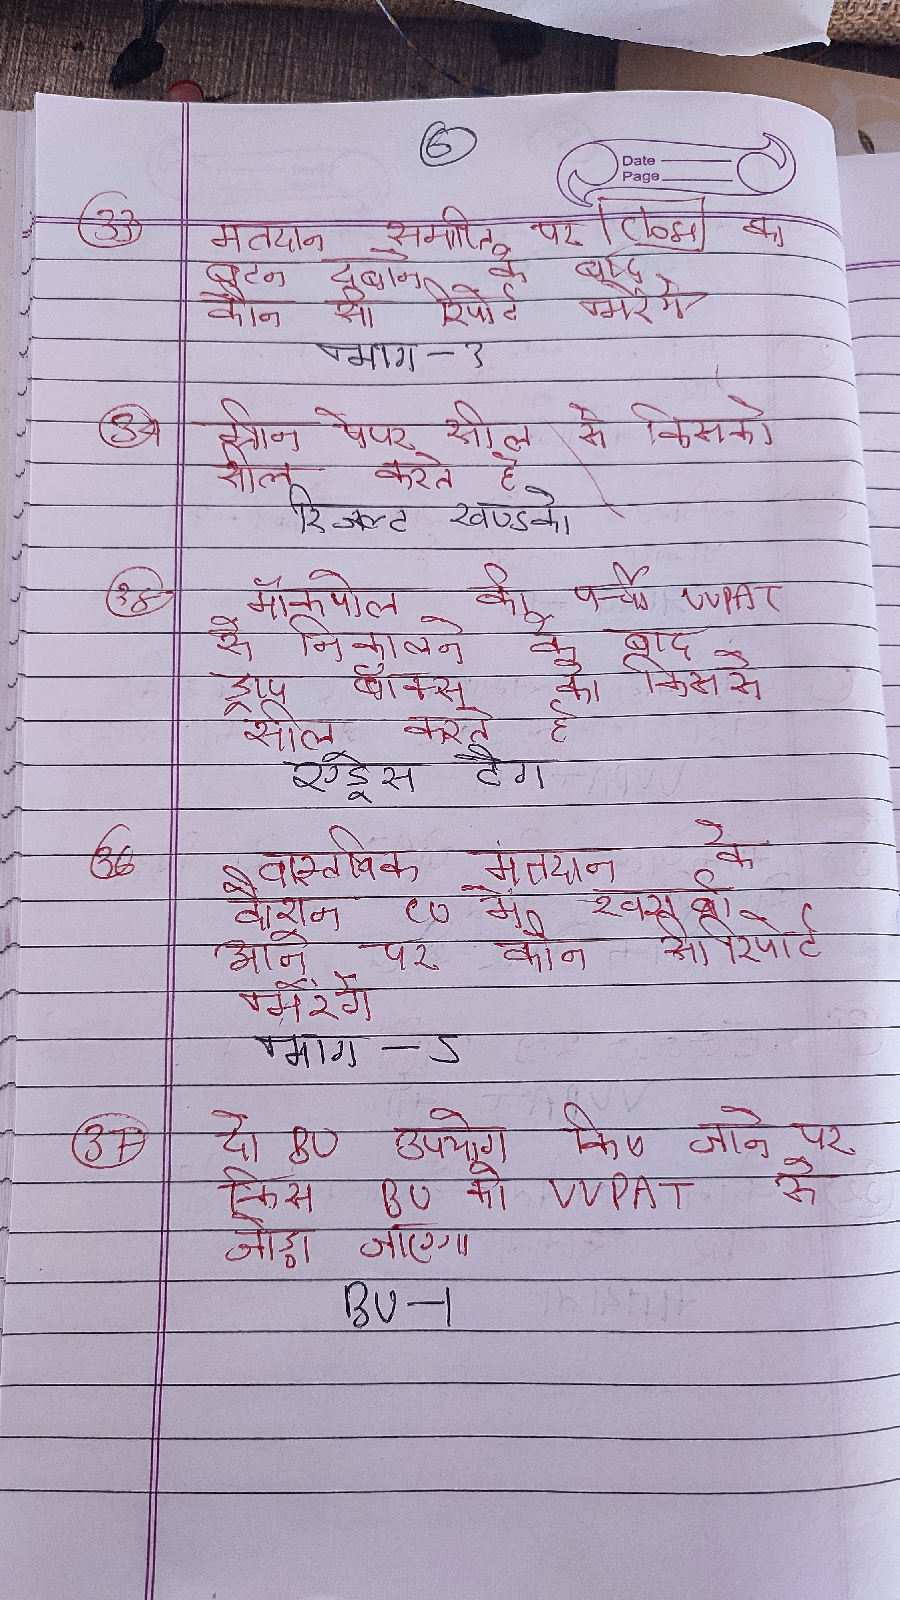 6
Date
Page
33 मतदान समाप्ति पर Close का
बटन दबाने के बाद
कौन सी रिपोर्ट भरेंगे
भाग - 3
34 ग्रीन पेपर सील से किसको
सील करते है
रिजल्ट खण्डको
मॉकपोल की पर्ची VVPAT
से निकालने के बाद
ड्राप बॉक्स को किससे
सील करते है
एड्रेस टैग
36 वास्तविक मतदान के
दौरान CU में
आने पर कौन सी रिपोर्ट
भरेंगे
भाग - 5
37 दो BU उपयोग किए जाने पर
किस BU को VVPAT से
जोड़ा जाएगा
BU-1